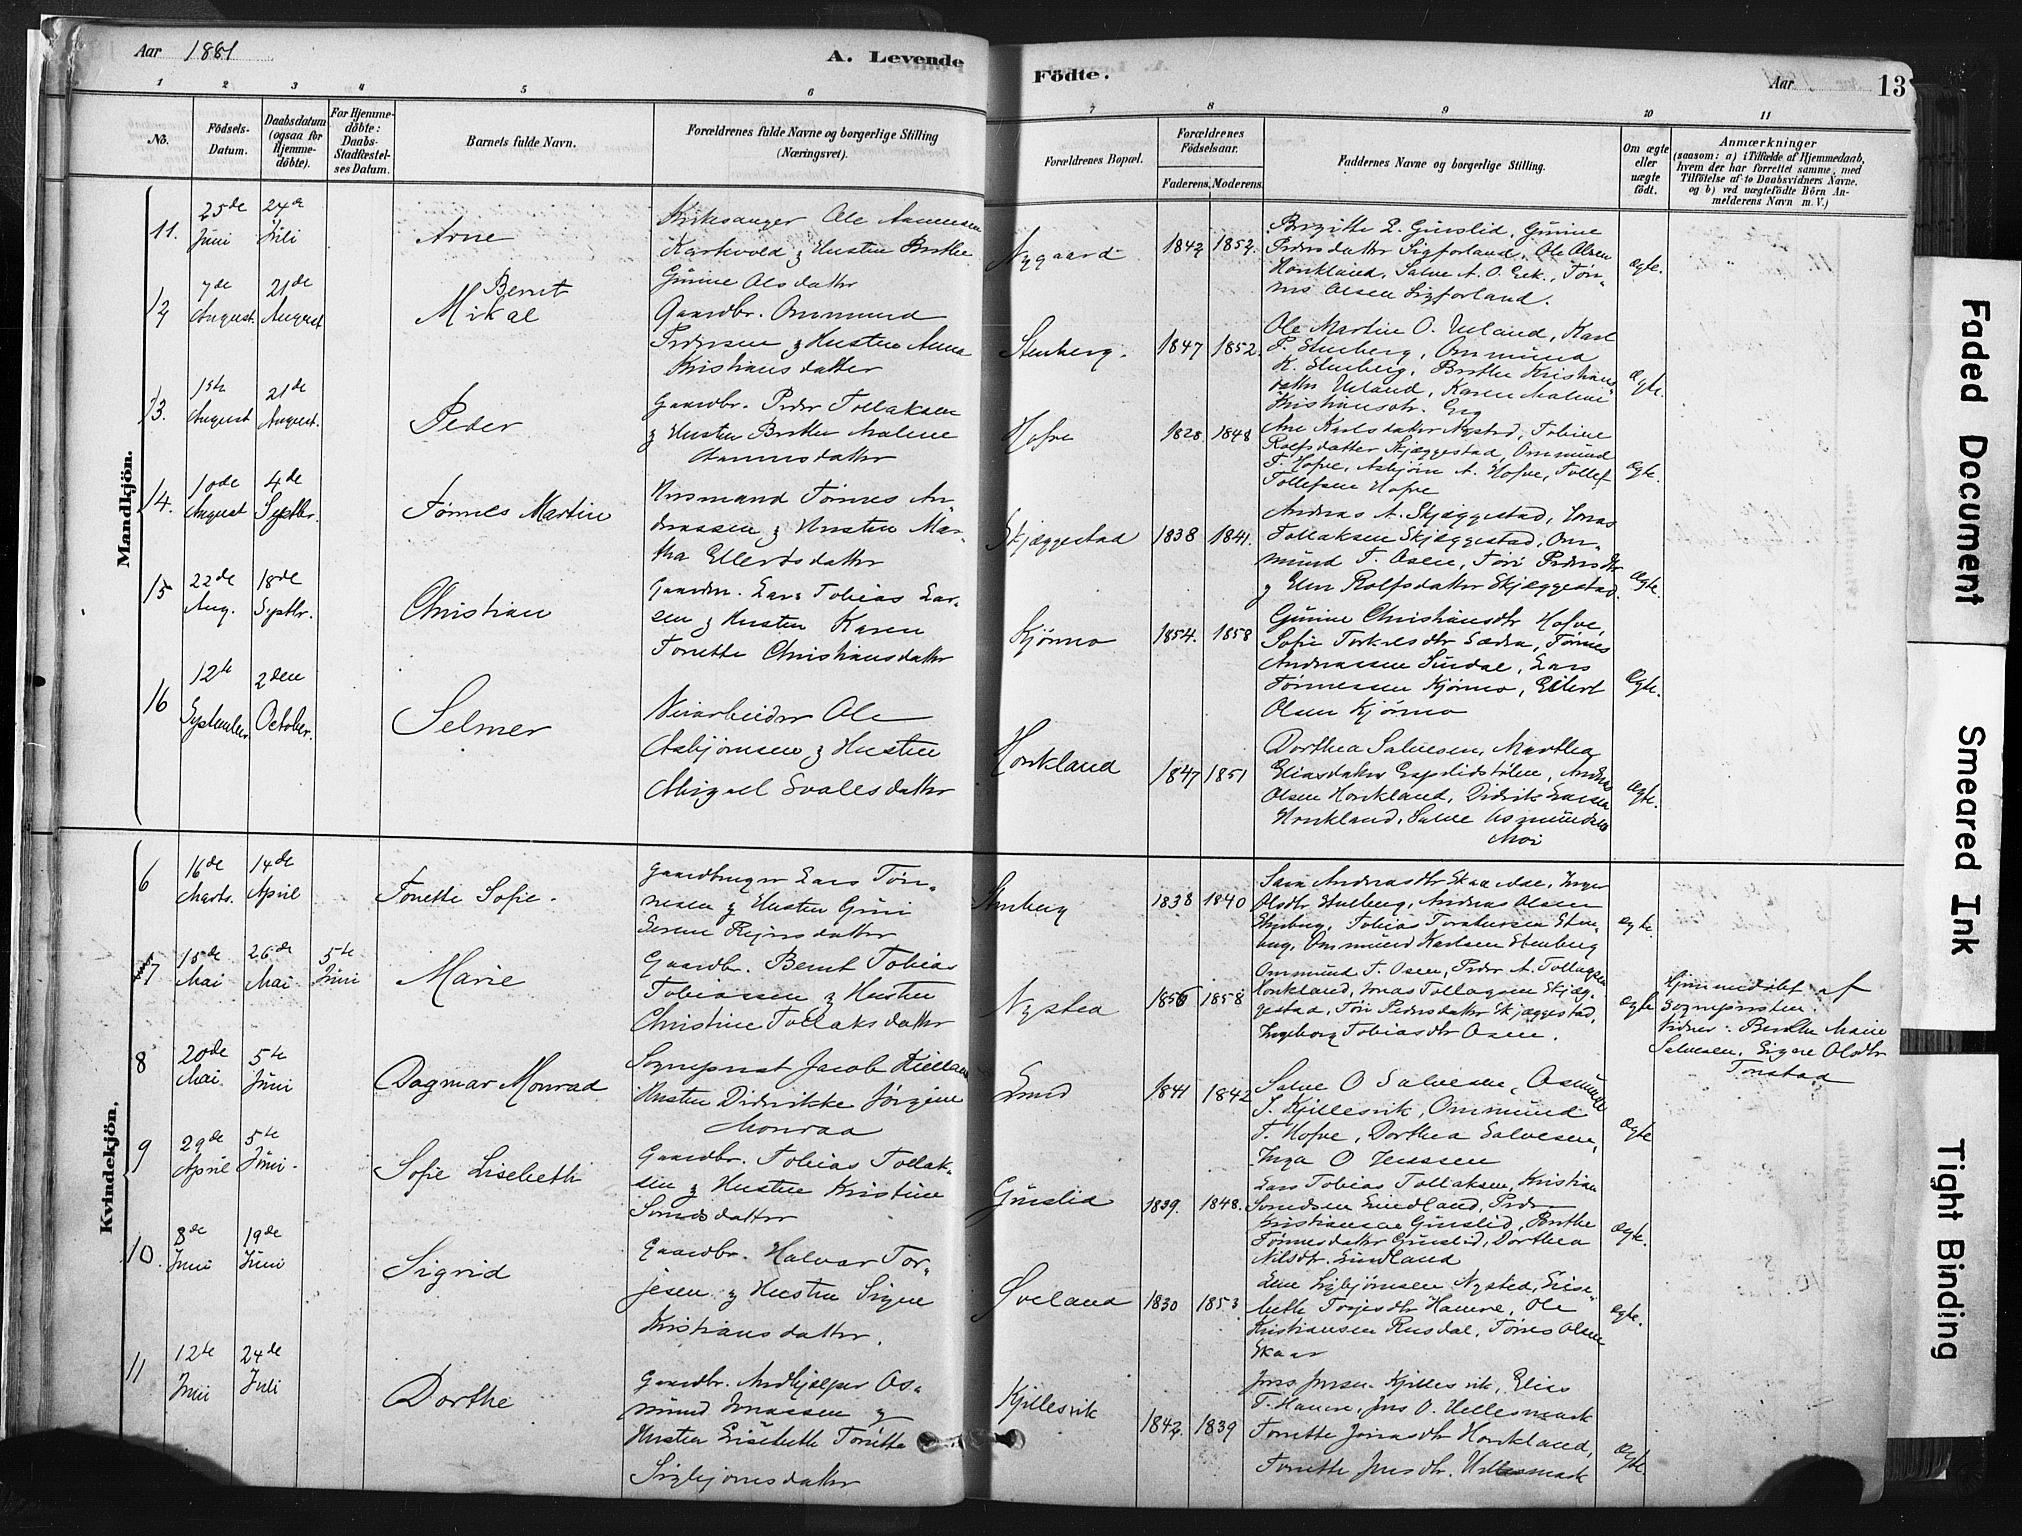 Aar 1881
A. Levende
Födte.
Aar
13
1 2 3 4 5 6 7 8 9 10 11
No.
Födsels-
Datum.
Daabsdatum
(ogsaa for
Hjemme-
döbte).
For Hjemme-
döbte:
Daabs-
Stadfæstel-
ses Datum.
Barnets fulde Navn.
Forældrenes fulde Navne og borgerlige Stilling
(Næringsvei).
Forældrenes Bopæl.
Forældrenes
Födselsaar.
Faderens. Moderens.
Faddernes Navne og borgerlige Stilling.
Om ægte
eller
uægte
födt.
Anmærkninger
(saasom: a) i Tilfælde af Hjemmedaab,
hvem der har forrettet samme, med
Tilföielse af to Daabsvidners Navne,
og b) ved uægtefödte Börn An-
melderens Navn m. V.)
Mandkjön.
11.
25de
Juni
24de
Juli
Arne
Kirkesanger Ole Aanensen
Kartevold & Hustru Berthe
Gunine Olsdatter
Nygaard
1842 1852
Birgitte L. Guislid, Gunine
Pedersdatter Sigforland, Ole Olsen
Honkland, Salve A. O. Eek, Tøn-
nes Olsen Sigforland.
ægte.
12
7de
August
21de
August
Bernt
Mikal
Gaardbr. Ommund
Pedersen & Hustru Anna
Kristiansdatter
Stenberg.
1847 1852.
Ole Martin O. Ueland, Karl
P. Stenberg, Ommund
K. Stenberg, Berthe Kristians-
datter Ueland, Karen Malene
Kristiansdtr. Eeg
Ægte.
13.
1ste
August
21de
August.
Peder
Gaardbr. Peder Tollaksen
& Hustru Berthe Malene
Aanensdatter
Hofve
1828. 1848
Ane Karlsdatter Nysted, Tobine
Rolfsdatter Skjæggestad, Ommund
T. Hofve, Asbjørn A. Hofve, Tollef
Tollefsen Hofve
Ægte.
14.
10de
August
4de
Septbr.
Tønnes Martin
Huusmand Tønnes An-
dreassen & Hustru Mar-
tha Ellertsdatter
Skjæggestad
1838 1841.
Andreas A. Skjæggestad, Jonas
Tollaksen Skjæggestad, Om-
mund T. Osen, Tøri Pedersdtr
& Elen Rolfsdatter Skjæggestad.
Ægte.
15
22de
Aug.
18de
Septbr.
Christian
Gaardbr. Lars Tobias Lar-
sen & Hustru Karen
Tonette Christiansdatter
Kjørmo
1854. 1858
Gunine Christiansdtr Hofve,
Sofie Torkelsdtr Lædre, Tønnes
Andreassen Sindal, Lars
Tønnessen Kjørmo, Eilert
Olsen Kjørmo
Ægte.
16
12te
September.
2den
October.
Selmer
Veiarbeider Ole
Asbjørnsen & Hustru
Abigael Svalesdatter
Honkland
1847 1851
Dorthea Salvesen, Marthea
Eliasdatter, Andreas
Olsen Honkland, Didrik Larsen
Honkland, Salve Asmundsen
Moi
Ægte.
Kvindekjön.
6
16de
Marts.
14de
April
Tonette Sofie.
Gaardbruger Lars Tøn-
nesen & Hustru Guri
Serene Reiersdatter
Stenberg
1838 1840
Sara Andreasdtr Skaaedal, Inger
Olsdtr Stenberg, Andreas Olsen
Stenberg, Tobias Torstensen Sten-
berg, Ommund Karlsen Stenberg
ægte.
7
15de
Mai
26de
Mai
5te
Juni
Marie
Gaardbr. Bernt Tobias
Tobiassen & Hustru
Christine Tollaksdatter
Nysted
1856 1858
Ommund T. Osen, Peder A. Tollagsen
Honkland, Jonas Tollagsen Skjæg-
gestad, Tøri Pedersdatter Skjæggestad,
Ingeborg Tobiasdtr Osen.
ægte
Hjemmedøbt af
Sognepresten.
Vidner: Berthe Marie
Salvesen, Signe Olsdtr
Tonstad
8
20de
Mai.
5te
Juni
Dagmar Monrad
Sogneprest Jacob Kielland
Hustru Didrikke Jørgine
Monrad
Lund
1841 1842
Salve O Salvesen, Osmund
S. Kjellesvik, Ommund
T. Hofve, Dorthea Salvesen,
Inga O Jenssen
Ægte
9
29de
April
5te
Juni.
Sofie Lisebeth
Gaardbr. Tobias Tollak-
sen & Hustru Kristine
Svendsdatter
Guslid
1839. 1848.
Lars Tobias Tollaksen, Kristian
Svendsen Eindland, Peder
Kristiansen Guslid, Berthe
Tønnesdatter Guslid, Dorthea
Nilsdtr. Eindland
Ægte.
10.
8de
Juni
19de
Juni
Sigrid
Gaardbr. Halvor Tor-
jesen & Hustru Signe
Kristiansdatter.
Øveland
1830 1853
Lene Sigbjørnsen Nysted, Lise-
beth Torjesdtr Hamre, Ole
Kristiansen Rusdal, Tønnes Olsen
Skaar
ægte.
11
12te
Juni
24de
Juli
Dorthe
Gaardbr. Medhjælper Os-
mund Jonassen &
Hustru Lisebeth Tonette
Sigbjørnsdatter
Kjellesvik
1842. 1839
Jens Jensen Kjellesvik, Elias
T. Hamre, Jens O. Uellesmark
Tonette Jonasdtr Honkland,
Tonette Jensdtr. Uellesmark
Ægte.
Faded Document
Smeared Ink
Tight Binding